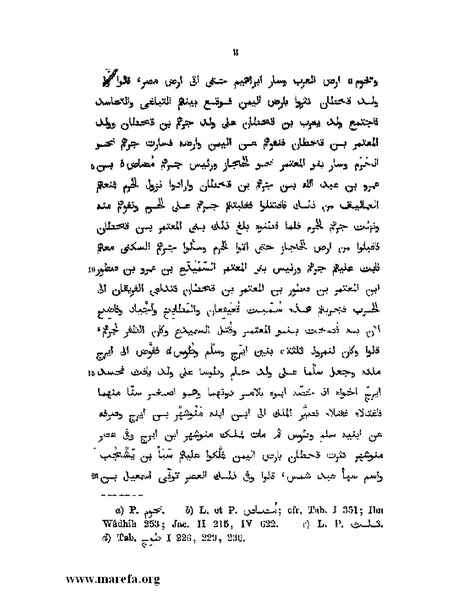 ١١
وتخوم a ارض المغرب وسار ابراهيم حتى اتى ارض مصر، قالوا
ولد قحطان كثروا بارض اليمن فوقع بينهم التباغى والتحاسد
فاجتمع ولد يعرب بن قحطان على ولد جرهم بن قحطان وولد
المعتمر بن قحطان فنفوهم عن اليمن وارضه فسارت جرهم نحو
الحرم وسار بنو المعتمر نحو الحجاز ورئيس جرهم مُضاض b بن 5
عمرو بن عبد الله بن جرهم بن قحطان وارادوا نزول الحرم فمنعهم
العماليق من ذلك فاقتتلوا فغلبتهم جرهم على الحرم ونفوهم عنه
ونزلت جرهم الحرم فلما بلغ ذلك بنى المعتمر بن قحطان
فاقبلوا من ارض الحجاز حتى اتوا الحرم وسألوا جرهم السكنى معهم
فابت عليهم جرهم ورئيس بنى المعتمر السَّمَيْدَع بن عمرو بن قنطور 10
ابن المعتمر بن قنطور بن المعتمر بن قحطان فتداعى الفريقان الى
الحرب فبحربهم هذه سُمّيت قُعَيْقِعان والمَطابخ وأَجْياد وفاضح
لان به فضحت بنو المعتمر وقُتل السميدع وكان الظفر لجرهم،
قالوا وكان لنمروذ ثلثة بنين ايرج وسلم وطوس d ففوّض الى ايرج
ملكه وجعل سلما على ولد حام وطوسا على ولد يافث فحسد 15
ايرج اخواه اذ خصّه ابوه بالامر دونهما وهو اصغر سنّا منهما
فاغتالاه فقتلاه فصيّر الملك الى ابن ابنه مَنُوشِهْر بن ايرج وصرفه
عن ابنيه سلم وطوس ثم مات بملك منوشهر ابن ايرج وفى عصر
منوشهر كثرت قحطان بارض اليمن فملّكوا عليهم سَبَأ بن يَشْجُب
واسم سبأ عبد شمس، قالوا وفى ذلك العصر توفّى اسمعيل بن 20
a) P. نجوم. b) L. et P. مصاص; cfr. Tab. I 351; Ibn
Wâdhih 253; Jac. II 215, IV 622. c) L. P.
d) Tab. طوج I 226, 229, 230.
www.marefa.org